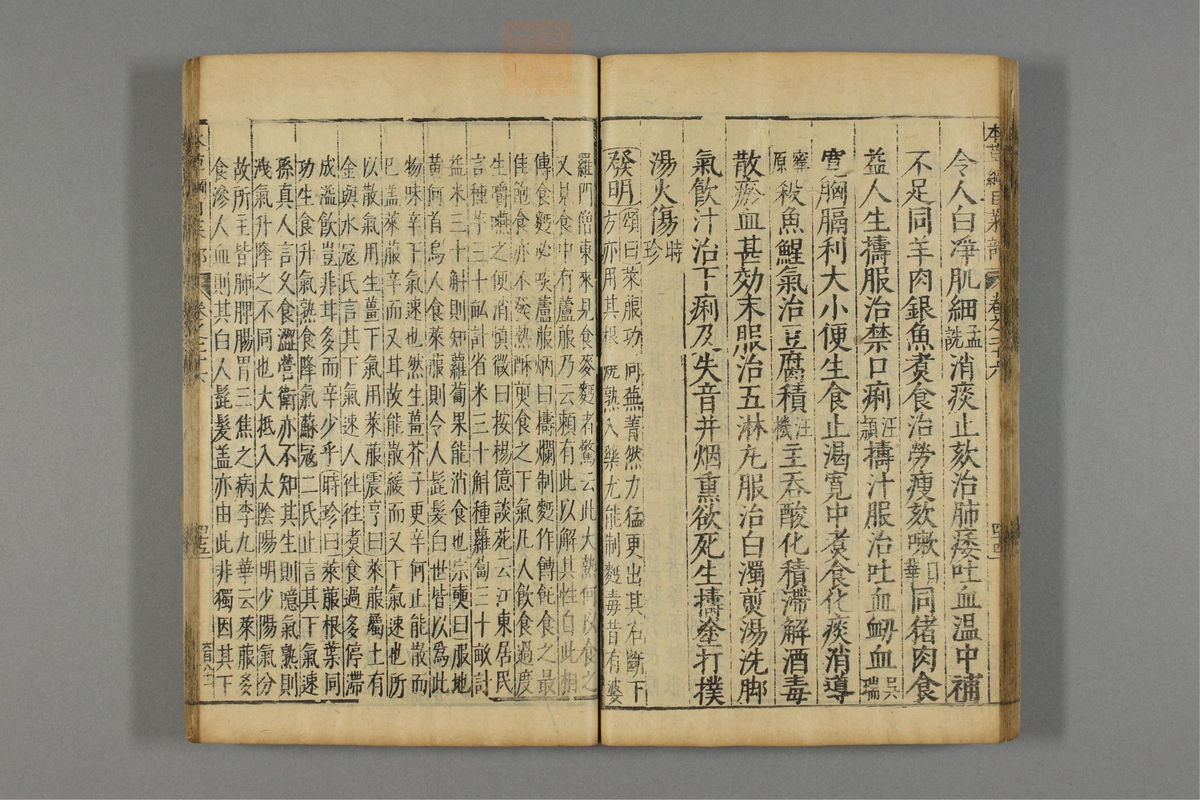 令人白淨肌細孟詵消痰止欬治肺痿吐血温中補
不足同羊肉銀魚煮食治勞瘦欬嗽日華同猪肉食
益人生擣服治禁口痢汪頴擣汁服治吐血衂血吳瑞
寬胸膈利大小便生食止渴寬中煮食化痰消導
寗原殺魚鯹氣治豆腐積汪機主吞酸化積滯解酒毒
散瘀血甚効末服治五淋丸服治白濁煎湯洗脚
氣飲汁治下痢及失音并烟熏欲死生擣塗打撲
湯火傷時珍
發明頌曰萊菔功同蕪菁然力猛更出其右斷下
方亦用其根燒熟入藥尤能制麪毒昔有婆
羅門僧東來見食麥麪者驚云此大熱何以食之
又見食中有蘆菔乃云賴有此以解其性自此相
傳食麪必啖蘆菔炳曰擣爛制麪作餺飥食之最
佳飽食亦不發熱酥煎食之下氣凡人飲食過度
生嚼嚥之便消慎微曰按楊億談苑云江東居民
言種芋三十畝計省米三十斛種蘿蔔三十畝計
益米三十斛則知蘿蔔果能消食也宗奭曰服地
黃何首烏人食萊菔則令人髭髮白世皆以為此
物味辛下氣速也然生薑芥子更辛何止能散而
已蓋萊菔辛而又甘故能散緩而又下氣速也所
以散氣用生薑下氣用萊菔震亨曰萊菔屬土有
金與水寇氏言其下氣速人往往煮食過多停滯
成溢飲豈非甘多而辛少乎時珍曰萊菔根葉同
功生食升氣熟食降氣蘇寇二氏止言其下氣速
孫真人言久食澀營衛亦不知其生則噫氣熟則
洩氣升降之不同也大抵入太陰陽明少陽氣分
故所主皆肺脾腸胃三焦之病李九華云萊菔多
食滲人血則其白人髭髮蓋亦由此非獨因其下
本草綱目菜部
卷之二十六